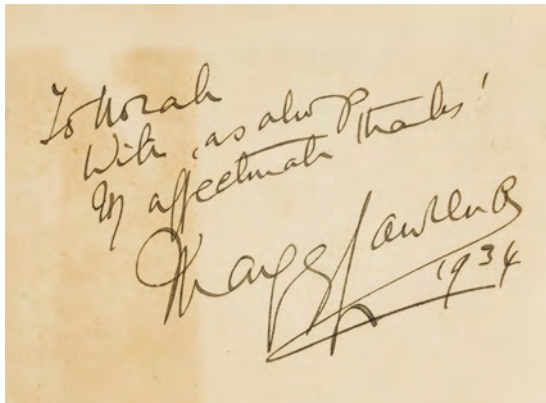 To Norah
With, as always
My affectionate thanks!
Lawrence
1934